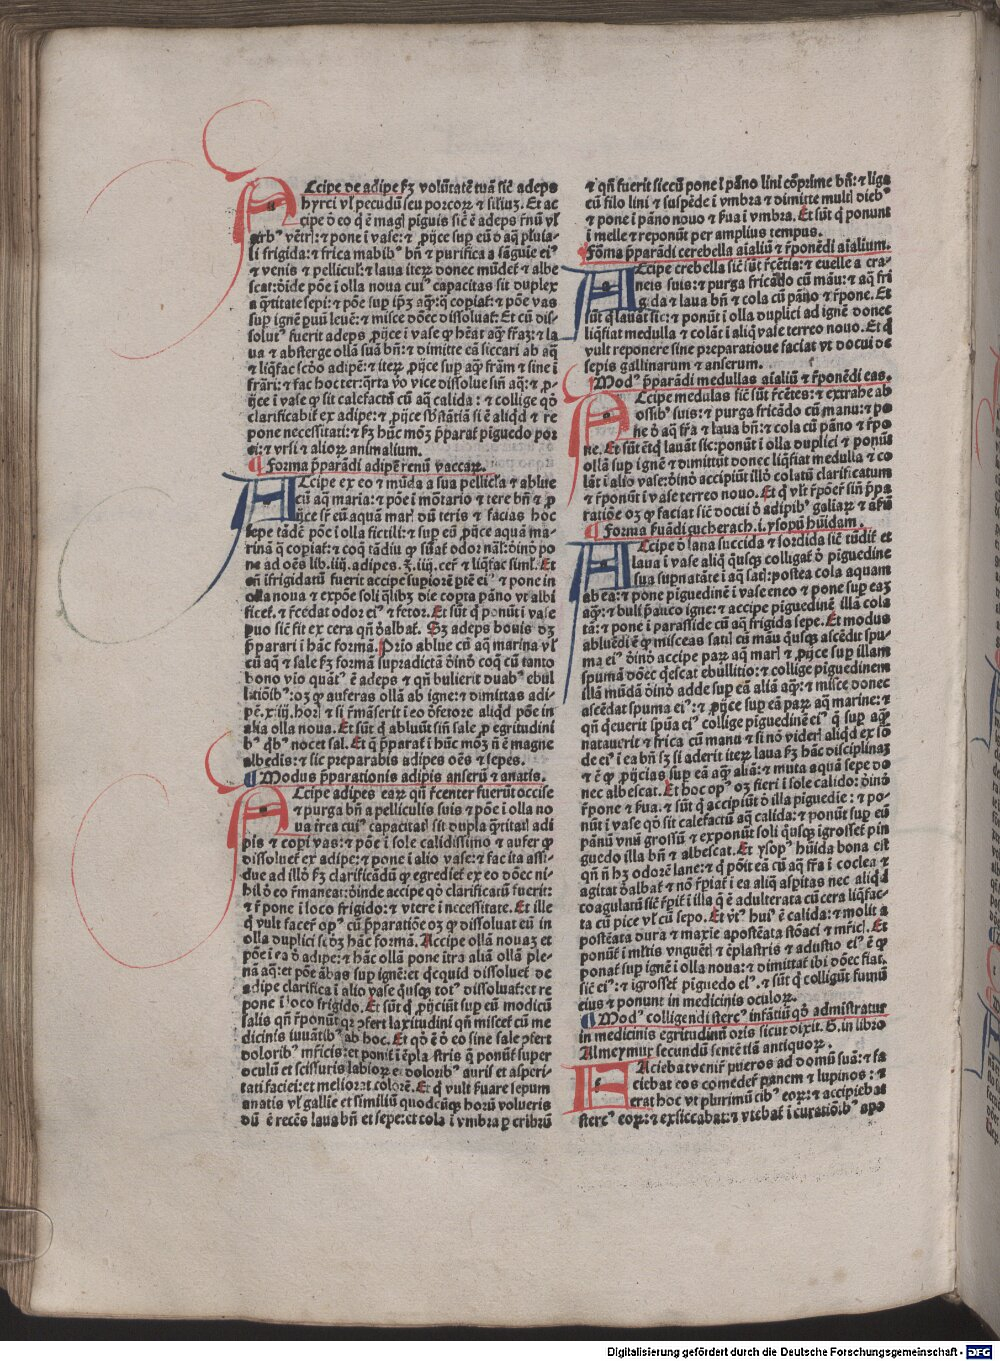 Accipe de adipe fꝫ volūtatē tuā sic̄ adeps
hyrci vl̓ pecudū seu porcoꝝ ⁊ siliuꝫ. Et ac
cipe ō eo q̄ ē magꝭ piguis sic̄ ē adeps rēnū vl̓
⁊ pone ī vase: ⁊ ꝓijce sup eū ō aq̄ pluia
li frigida: ⁊ frica manibꝰ bn̄ ⁊ purifica a sāguīe eiꝰ
⁊ venis ⁊ pelliculꝭ: ⁊ laua iterꝝ donec mūdet̄ ⁊ albe
scat: ōide pōe ī olla noua cuiꝰ capacitas sit duplex
a q̄titate sepi: ⁊ pōe sup ip̄ꝫ aq̄ꝫ q̄ copiat̄: ⁊ pōe vas
sup ignē puū leuē: ⁊ misce dōec dissoluat̄: Et cū dis-
solutꝰ fuerit adeps ꝓijce ī vase qꝫ hēat aq̄ꝫ fr̄aꝫ: ⁊ la
ua ⁊ absterge ollā suā bn̄: ⁊ dimitte eā siccari ab aq̄
⁊ liq̄fac scd̄o adipē: ⁊ iterꝝ ꝓijce sup aq̄ꝫ fr̄am ⁊ sine ī
fr̄ari: ⁊ fac hoc ter: q̄rta vō vice dissolue sin̄ aq̄: ⁊ ꝓ-
ijce ī vase qꝫ sit calefactū cū aq̄ calida: ⁊ collige qō
clarificabit̄ ex adipe: ⁊ ꝓijce sb̄stātiā si ē aliqd̄ ⁊ re
pone necessitati: ⁊ fꝫ hūc moꝫ p̄parat̄ pīguedo por
ci: ⁊ vrsi ⁊ alioꝝ animalium.
¶ Forma p̄parādi adipē renū vaccaꝝ.
Accipe ex eo ⁊ mūda a sua pellicla ⁊ ablue
cū aq̄ maria: ⁊ pōe ī mōtario ⁊ tere bn̄ ⁊ ꝓ
ijce sr̄ cū aquā marꝭ dū teris ⁊ facias hoc
sepe tādē pōe ī olla fictili: ⁊ sup eū ꝓijce aquā ma-
rinā q̄ copiat̄: ⁊ coq̄ tādiu qꝫ sūat̄ odor nāl̓: ōīno po
ne ad oēs lib. iiij. adipes. ʒ. iiij. cer̄ ⁊ liq̄fac siml̓. Et
qn̄ īfrigidatū fuerit accipe supiorē p̄tē eiꝰ ⁊ pone in
olla noua ⁊ expōe soli q̄libꝫ die copta pāno vt albi
ficet̄. ⁊ r̄cedat odor eiꝰ ⁊ fetor. Et sūt q̄ ponūt ī vase
duo sic̄ fit ex cera qn̄ ōalbat̄. Sꝫ adeps bouis dꝫ
p̄parari ī hāc formā. Prio ablue cū aq̄ marina vl̓
cū aq̄ ⁊ sale fꝫ formā supradictā ōīnō coq̄ cū tanto
bono vīo quātꝰ ē adeps ⁊ qn̄ bulierit duabꝰ ebul
litiōibꝰ: oꝫ qꝫ auferas ollā ab igne: ⁊ dimittas adi-
pē. xxiiij. horꝭ ⁊ si r̄māserit ī eo ōfetore aliqd̄ pōe in
alia olla noua. Et sūt q̄ abluūt sin̄ sale ꝓ egritudini
bꝰ qbꝰ nocet sal. Et q̄ p̄parat̄ ī hūc moꝫ n̄ ē magne
albedis: ⁊ sic preparabis adipes oēs ⁊ sepes.
¶ Modus p̄parationis adipis anserū ⁊ anatis.
Accipe adipes eaꝝ qn̄ r̄center fuerūt occise
⁊ purga bn̄ a pelliculis suis ⁊ pōe ī olla no
ua t̄rea cuiꝰ capacitatꝭ sit dupla q̄titatꝭ adi
pis ⁊ copī vas: ⁊ pōe ī sole calidissimo ⁊ aufer qꝫ
dissoluet̄ ex adipe: ⁊ pone ī alio vase: ⁊ fac ita assi-
due ad illō fꝫ clarificādū qꝫ egrediet̄ ex eo dōec ni-
hil ō eo r̄maneat: ōinde accipe qō clarificatū fuerit:
⁊ r̄pone ī loco frigido: ⁊ vtere ī necessitate. Et ille
q̄ vult facer̄ opꝰ cū p̄paratiōe oꝫ qꝫ dissoluat eū in
olla duplici sꝫ dꝫ hāc formā. Accipe ollā nouaꝫ et
pōe ī ea ō adipe: ⁊ hāc ollā pone ītra aliā ollā ple-
nā aq̄: et pōe ābas sup ignē: et qcquid dissoluet̄ de
adipe clarifica ī alio vase q̄usqꝫ totꝰ dissoluat̄: et re
pone ī loco frigido. Et sūt q̄ ꝓijciūt sup eū modicū
salis qn̄ r̄ponūt qꝛ ꝯfert laxitudini qn̄ miscet̄ cū me
dicinis iuuātibꝰ ab hoc. Et qō ē ō eo sine sale ꝯfert
doloribꝰ mr̄icis: et ponit̄ ī ēplastris q̄ ponūt̄ super
oculū et scissuris labioꝝ et doloribꝰ auris et asperi-
tati faciei: et meliorat colorē. Et q̄ vult ẜuare sepum
anatis vl̓ gallie et similiū quodcūqꝫ horū volueris
dū ē recēs laua bn̄ et sepe: et cola ī vmbra ꝑ cribrū
⁊ qn̄ fuerit siccū pone ī pāno lini cōprime bn̄: ⁊ liga
cū filo lini ⁊ suspēde ī vmbra ⁊ dimitte multꝭ diebꝰ
⁊ pone ī pāno nouo ⁊ ẜua ī vmbra. Et sūt q̄ ponunt
ī melle ⁊ reponūt per amplius tempus.
¶ Fōma p̄parādi cerebella aīaliū ⁊ r̄ponēdi aīalium.
Accipe crebella sic̄ sūt r̄cētia: ⁊ euelle a cra-
neis suis: ⁊ purga fricādo cū māu: ⁊ aq̄ fri
gida ⁊ laua bn̄ ⁊ cola cū pāno ⁊ r̄pone. Et
sūt q̄ lauāt sic: ⁊ ponūt ī olla duplici ad ignē donec
liq̄fiat medulla ⁊ colāt ī aliq̄ vase terreo nouo. Et q̄
vult reponere sine preparatioue faciat vt docui de
sepis gallinarum ⁊ anserum.
¶ Modꝰ p̄parādi medullas aīaliū ⁊ r̄ponēdi eas.
Accipe medulas sic̄ sūt r̄cētes: ⁊ extrahe ab
ossibꝰ suis: ⁊ purga fricādo cū manu: ⁊ po
ne ō aq̄ fr̄a ⁊ laua bn̄: ⁊ cola cū pāno ⁊ r̄po
ne. Et sūt ētq̄ lauāt sic: ponūt ī olla duplici ⁊ ponūt
ollā sup ignē ⁊ dimittūt donec liq̄fiat medulla ⁊ co
lāt ī alio vase: ōīnō accipiūt illō colatū clarificatum
⁊ r̄ponūt ī vase terreo nouo. Et q̄ vlt̄ r̄pōer̄ sin̄ p̄pa
ratiōe oꝫ qꝫ faciat sic̄ docui ō adipibꝰ galiaꝝ ⁊ āserū
¶ Forma ẜuādi sucherach. i. ysopū hūidam.
Accipe ō lana succida ⁊ sordida sic̄ tūdit̄ et
laua ī vase aliq̄ q̄usqꝫ colligat̄ ō piguedine
sua supnatāte ī aq̄ satꝭ: postea cola aquam
ab ea: ⁊ pone piguedinē ī vase eneo ⁊ pone sup eaꝫ
aq̄ꝫ: ⁊ buli p̄auco igne: ⁊ accipe piguedinē illā cola
tā: ⁊ pone ī parasside cū aq̄ frigida sepe. Et modus
abluēdi ē qꝫ misceas satꝭ cū māu q̄usqꝫ ascēdit spu-
ma eiꝰ ōīnō accipe paꝝ aq̄ marꝭ ⁊ ꝓijce sup illam
spumā dōec q̄escat ebullitio: ⁊ collige piguedinem
illā mūdā ōīnō adde sup eā aliā aq̄ꝫ: ⁊ misce donec
ascēdat spuma eiꝰ: ⁊ ꝓijce sup eā paꝝ aq̄ marine: ⁊
qn̄ q̄euerit spūa eiꝰ collige pīguedinē eiꝰ q̄ sup aq̄ꝫ
natauerit ⁊ frica cū manu ⁊ si nō viderꝭ aliqd̄ ex sō
de eiꝰ ī ea bn̄ sꝫ si aderit iterꝝ laua fꝫ hāc disciplinaꝫ
⁊ ē qꝫ ꝓijcias sup eā aq̄ꝫ aliā: ⁊ muta aquā sepe do
nec albescat. Et hoc opꝰ oꝫ fieri ī sole calido: ōīnō
r̄pone ⁊ ẜua: ⁊ sūt q̄ accipiūt ō illa piguedie: ⁊ po-
nūt ī vase qō sit calefactū aq̄ calida: ⁊ ponūt sup eū
pānū vnū grossū ⁊ exponūt soli q̄usqꝫ īgrosset̄ pin
guedo illa bn̄ ⁊ albescat. Et ysopꝰ hūida bona est
qn̄ n̄ hꝫ odorē lane: ⁊ q̄ pōīt eā cū aq̄ fr̄a ī coclea ⁊
agitat ōalbat̄ ⁊ nō r̄piat̄ ī ea aliq̄ aspītas nec aliqd̄
coagulatū sic̄ r̄pīt̄ ī illa q̄ ē adulterata cū cera liq̄fac-
ta cū pice vl̓ cū sepo. Et vtꝰ huiꝰ ē calida: ⁊ molit a
postēata dura ⁊ maxie apostēata stōaci ⁊ mr̄icꝭ. Et
ponūt̄ ī mltis vnguētꝭ ⁊ ēplastris ⁊ adustio eiꝰ ē qꝫ
ponat̄ sup ignē ī olla noua: ⁊ dimittat̄ ibi dōec fiat
sic̄ eiꝰ: ⁊ īgrosset̄ piguedo eiꝰ. ⁊ sūt q̄ colligūt fumū
eius ⁊ ponunt in medicinis oculoꝝ.
¶ Modꝰ colligendi stercꝰ infātiū qō admīstratur
in medicinis egritudinū oris sicut dixit. G. in libro
Almeymur secundū sentētiā antiquoꝝ.
Faciebat venir̄ pueros ad domū suā: ⁊ fa
ciebat eos comeder̄ panem ⁊ lupinos: ⁊
erat hoc vt plurimū cibꝰ eoꝝ: ⁊ accipiebat
stercꝰ eoꝝ: ⁊ exsiccabat: ⁊ vtebat̄ ī curatiōibꝰ apo
Digitalisierung gefördert durch die Deutsche Forschungsgemeinschaft - DFG